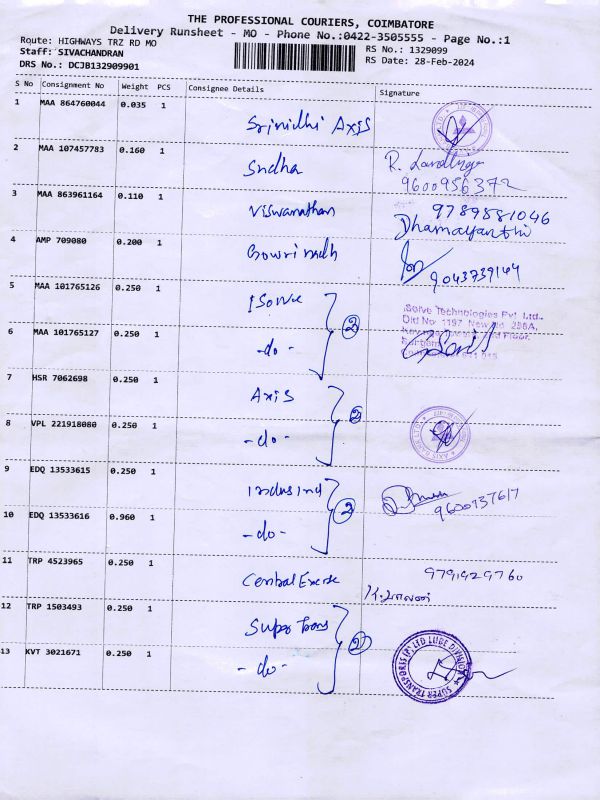 THE PROFESSIONAL COURIERS, COIMBATORE
Delivery Runsheet - MO - Phone No.:0422-3505555 - Page No.:1
Route: HIGHWAYS TRZ RD MO
Staff: SIVACHANDRAN
DRS No.: DCJB132909901
RS No.: 1329099
RS Date: 28-Feb-2024
S No Consignment No Weight PCS Consignee Details Signature
1 MAA 864760044 0.035 1 Srinidhi Axis
2 MAA 107457783 0.160 1 Sudha R.
9600956372
3 MAA 863961164 0.110 1 Viswanathan 9789581046
Dhamayanthi
4 AMP 709080 0.200 1 9043739144
5 MAA 101765126 0.250 1 ISERVE
iServe Technologies Pvt. Ltd.,
Old No :197 New No 256A,
6 MAA 101765127 0.250 1 -do- 2
7 HSR 7062698 0.250 1 Axis
8 VPL 221918080 0.250 1 -do- 2
AXIS BANK LTD
9 EDQ 13533615 0.250 1 Indus Ind
10 EDQ 13533616 0.960 1 -do- 2
11 TRP 4523965 0.250 1 Central Excise
12 TRP 1503493 0.250 1 Super Trans
13 KVT 3021671 0.250 1 -do- 2
SUPER TRANSPORTS (P) LTD LUBE DIVISION